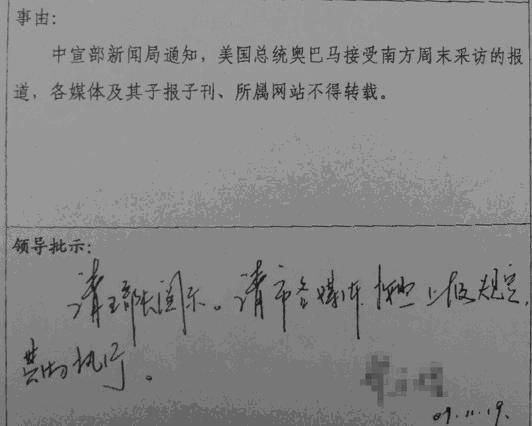 事由:
中宣部新闻局通知，美国总统奥巴马接受南方周末采访的报
道，各媒体及其子报子刊、所属网站不得转载。
领导批示:
请王部长阅示。请市各媒体按照上级规定,
贯彻执行。
09.11.19.